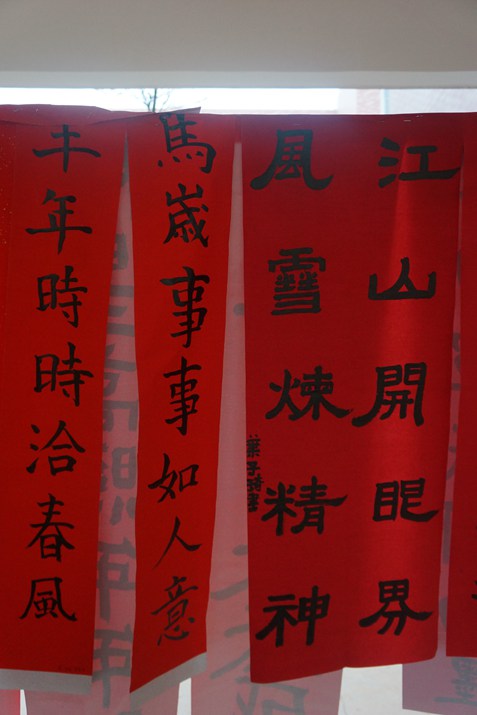 江山開眼界
風雪煉精神
馬歲事事如人意
午年時時洽春風